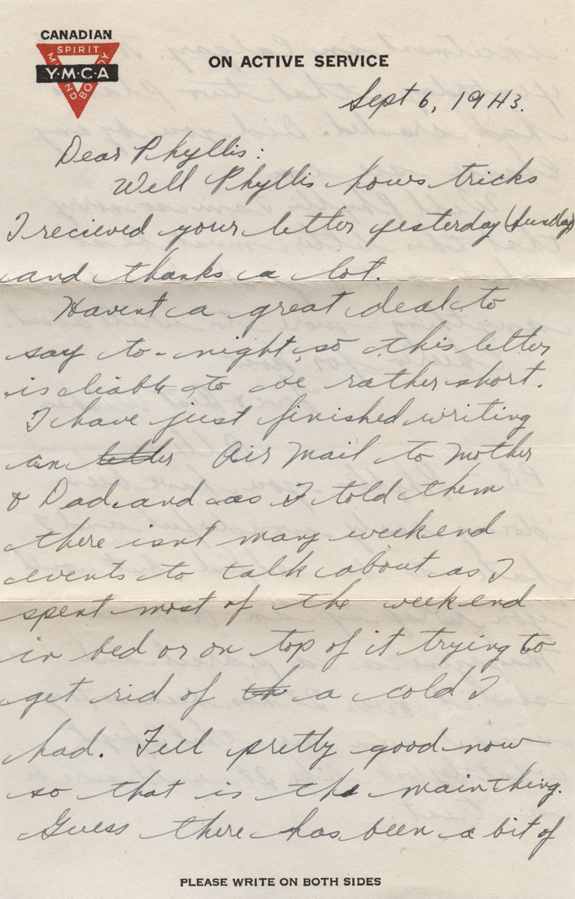 CANADIAN
SPIRIT
Y·M·C·A
MIND BODY
ON ACTIVE SERVICE
Sept 6, 1943.
Dear Phyllis:
Well Phyllis hows tricks
I recieved your letter yesterday (Sunday)
and thanks a lot.
Havent a great deal to
say to-night, so this letter
is liable to be rather short.
I have just finished writing
an letter Air Mail to Mother
& Dad and as I told them
there isnt many weekend
events to talk about as I
spent most of the weekend
in bed or on top of it trying to
get rid of th a cold I
had. Fell pretty good now
so that is the main thing.
Guess there has been a bit of
PLEASE WRITE ON BOTH SIDES